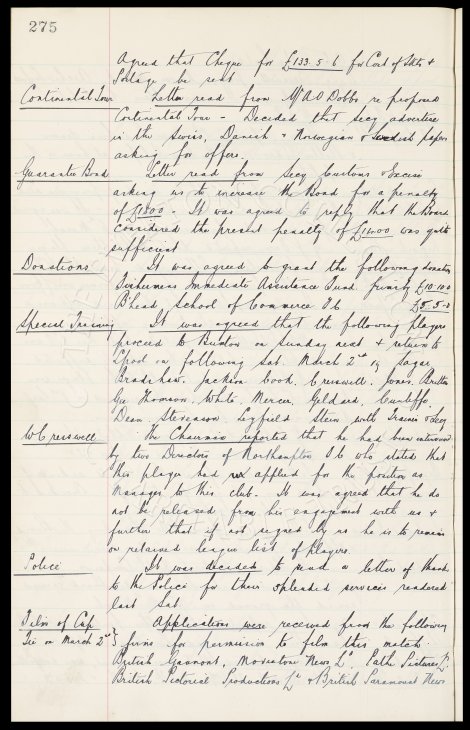 275
Agreed that Cheque for £133.5.6 for Cost of Tkts &
Postage be sent
Continental Tour Letter read from Mr A O Dobbs re proposed
Continental Tour - Decided that secy advertise
in the Swiss, Danish & Norwegian & Swedish papers
asking for offers.
Guarantee Bond Letter read from Secy Customs & Excise
asking us to increase the Bond for a penalty
of - It was agreed to reply that the Board
considered the present penalty of was quite
sufficient
Donations It was agreed to grant the following donations
Fishermens Immediate Assistance Fund £10.10.0
B'head School of Commerce F.C £5.5.0
Special Training It was agreed that the following players
proceed to Buxton on Sunday next & return to
Lpool on following Sat. March 2nd Sagar
Bradshaw. Jackson Cook. Cresswell. Jones. Britton
Geo Thomson. White. Mercer. Geldard, Cunliffe.
Dean. Stevenson. Leyfield Stein with Trainer & Secy
W Cresswell The Chairman reported that he had been interviewed
by two Directors of Northampton F.C who stated that
this player had applied for the position as
Manager to this club. It was agreed that he do
not be released from his engagement with us &
further that if not signed by us he is to remain
on retained league list of players.
Police It was decided to send a letter of thanks
to the Police for their splendid services rendered
last Sat
Film of Cup Applications were received from the following
Tie on March 2nd } firms for permission to film this match
British Gaumont, Movietone News Ld. Pathe Pictures Ld
British Pictorial Productions Ld & British Paramount News